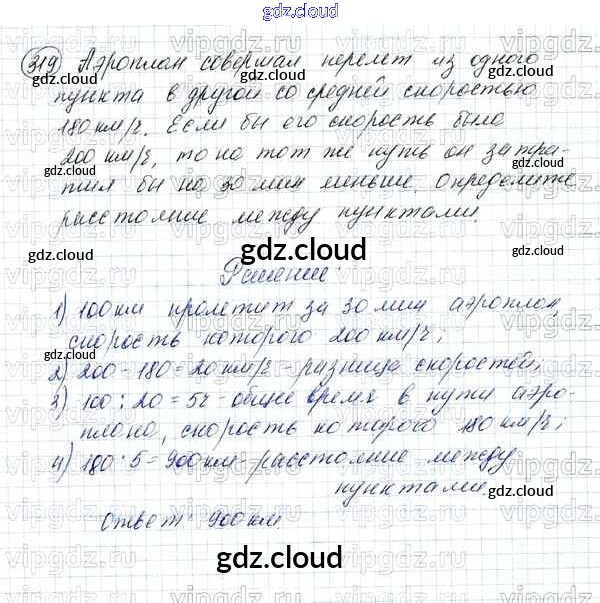 gdz.cloud
319) Аэроплан совершал перелет из одного
пункта в другой со средней скоростью
180 км/ч. Если бы его скорость была
200 км/ч, то на тот же путь он затра-
тил бы на 30 мин меньше. Определите
расстояние между пунктами.
gdz.cloud
Решение:
1) 100 км пролетит за 30 мин аэроплан,
скорость которого 200 км/ч;
2) 200 - 180 = 20 км/ч - разница скоростей;
3) 100 : 20 = 5ч - общее время в пути аэро-
плана, скорость которого 180 км/ч;
4) 180 · 5 = 900 км - расстояние между
пунктами.
Ответ: 900 км.
gdz.cloud